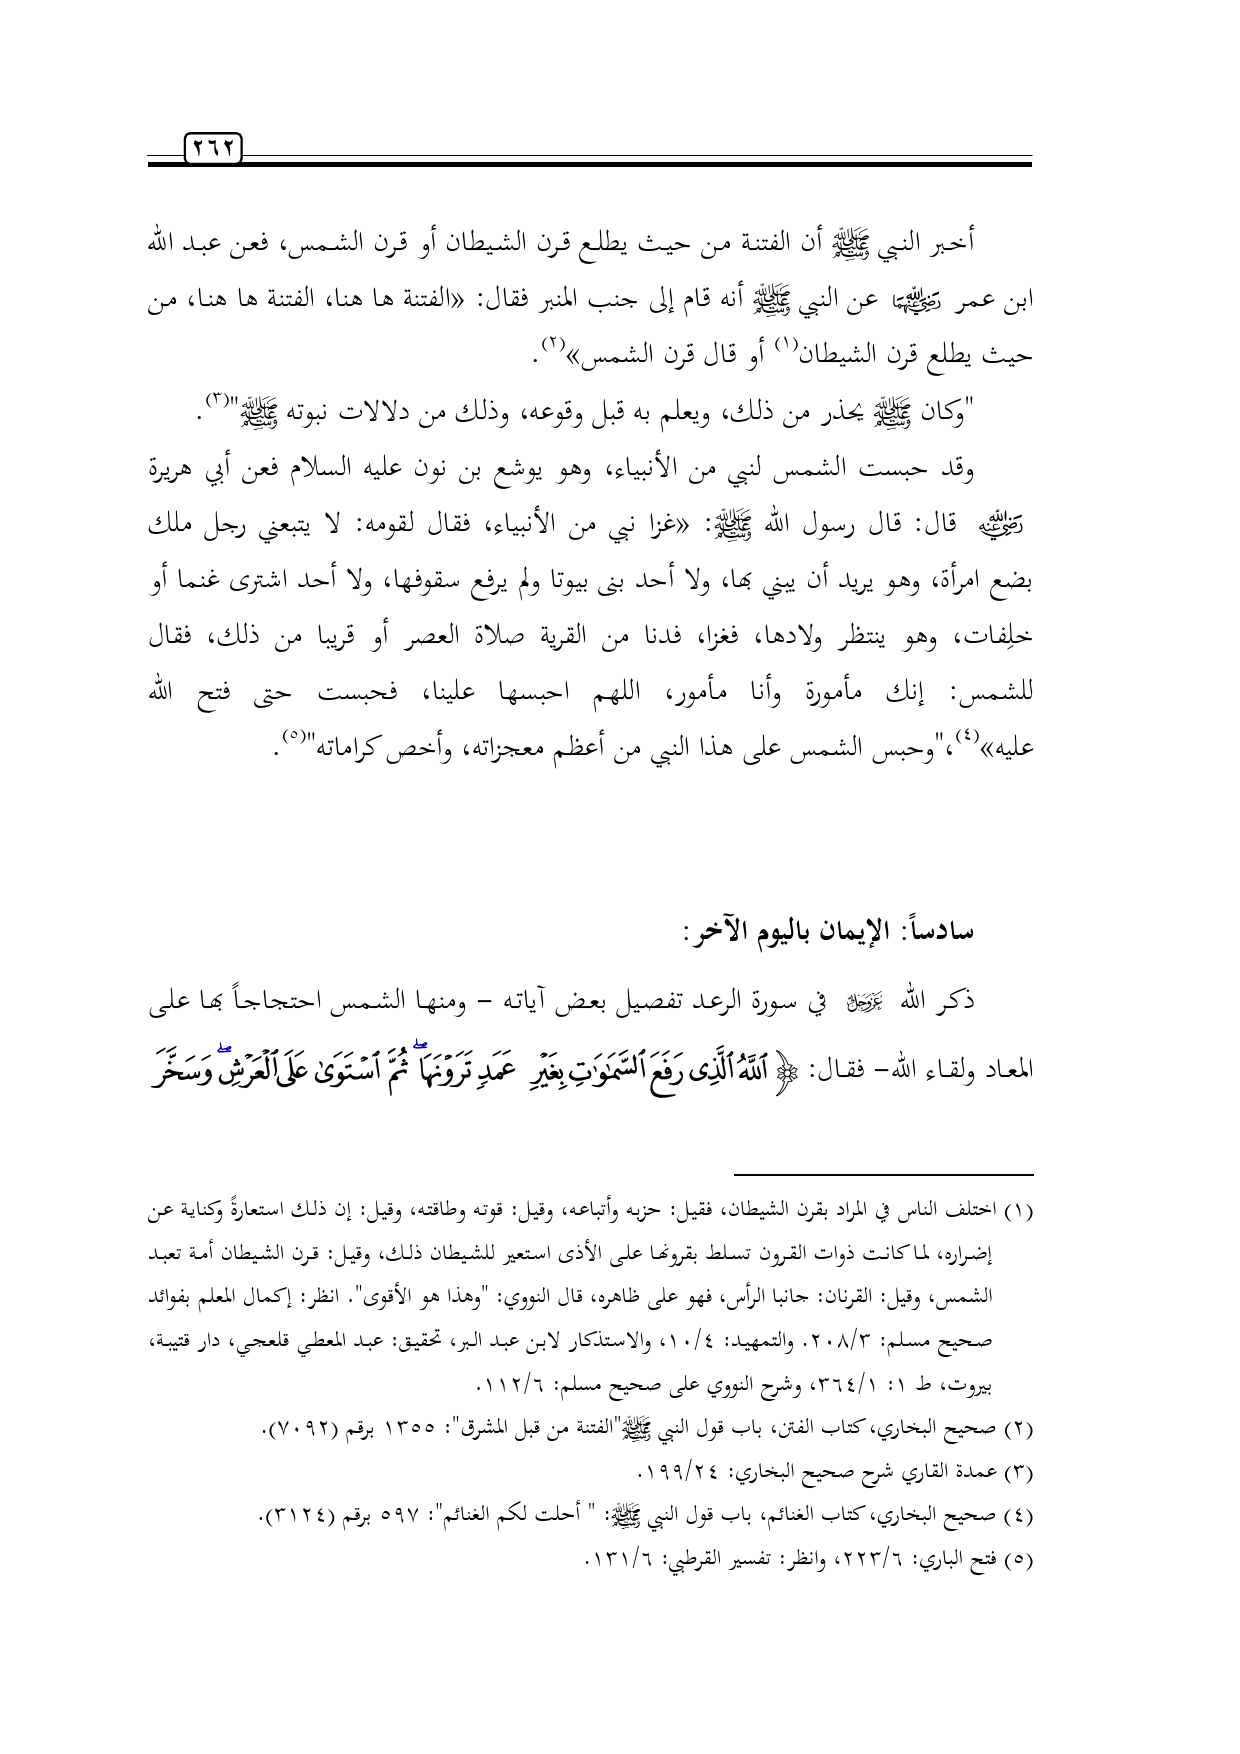 ٢٦٢
أخبر النبي ﷺ أن الفتنة من حيث يطلع قرن الشيطان أو قرن الشمس، فعن عبد الله
ابن عمر رضي الله عنهما عن النبي ﷺ أنه قام إلى جنب المنبر فقال: «الفتنة ها هنا، الفتنة ها هنا، من
حيث يطلع قرن الشيطان(١) أو قال قرن الشمس»(٢).
"وكان ﷺ يحذر من ذلك، ويعلم به قبل وقوعه، وذلك من دلالات نبوته ﷺ"(٣).
وقد حبست الشمس لنبي من الأنبياء، وهو يوشع بن نون عليه السلام فعن أبي هريرة
رضي الله عنه قال: قال رسول الله ﷺ: «غزا نبي من الأنبياء، فقال لقومه: لا يتبعني رجل ملك
بضع امرأة، وهو يريد أن يبني بها، ولا أحد بنى بيوتا ولم يرفع سقوفها، ولا أحد اشترى غنما أو
خلِفات، وهو ينتظر ولادها، فغزا، فدنا من القرية صلاة العصر أو قريبا من ذلك، فقال
للشمس: إنك مأمورة وأنا مأمور، اللهم احبسها علينا، فحبست حتى فتح الله
عليه»(٤)،"وحبس الشمس على هذا النبي من أعظم معجزاته، وأخص كراماته"(٥).
سادساً: الإيمان باليوم الآخر:
ذكر الله عز وجل في سورة الرعد تفصيل بعض آياته – ومنها الشمس احتجاجاً بها على
المعاد ولقاء الله– فقال: ﴿ ٱللَّهُ ٱلَّذِى رَفَعَ ٱلسَّمَٰوَٰتِ بِغَيْرِ عَمَدٍ تَرَوْنَهَا ۖ ثُمَّ ٱسْتَوَىٰ عَلَى ٱلْعَرْشِ ۖ وَسَخَّرَ
(١) اختلف الناس في المراد بقرن الشيطان، فقيل: حزبه وأتباعه، وقيل: قوته وطاقته، وقيل: إن ذلك استعارةً وكناية عن
إضراره، لما كانت ذوات القرون تسلط بقرونها على الأذى استعير للشيطان ذلك، وقيل: قرن الشيطان أمة تعبد
الشمس، وقيل: القرنان: جانبا الرأس، فهو على ظاهره، قال النووي: "وهذا هو الأقوى". انظر: إكمال المعلم بفوائد
صحيح مسلم: ٢٠٨/٣. والتمهيد: ١٠/٤، والاستذكار لابن عبد البر، تحقيق: عبد المعطي قلعجي، دار قتيبة،
بيروت، ط ١: ٣٦٤/١، وشرح النووي على صحيح مسلم: ١١٢/٦.
(٢) صحيح البخاري، كتاب الفتن، باب قول النبي ﷺ"الفتنة من قبل المشرق": ١٣٥٥ برقم (٧٠٩٢).
(٣) عمدة القاري شرح صحيح البخاري: ١٩٩/٢٤.
(٤) صحيح البخاري، كتاب الغنائم، باب قول النبي ﷺ: " أحلت لكم الغنائم": ٥٩٧ برقم (٣١٢٤).
(٥) فتح الباري: ٢٢٣/٦، وانظر: تفسير القرطبي: ١٣١/٦.